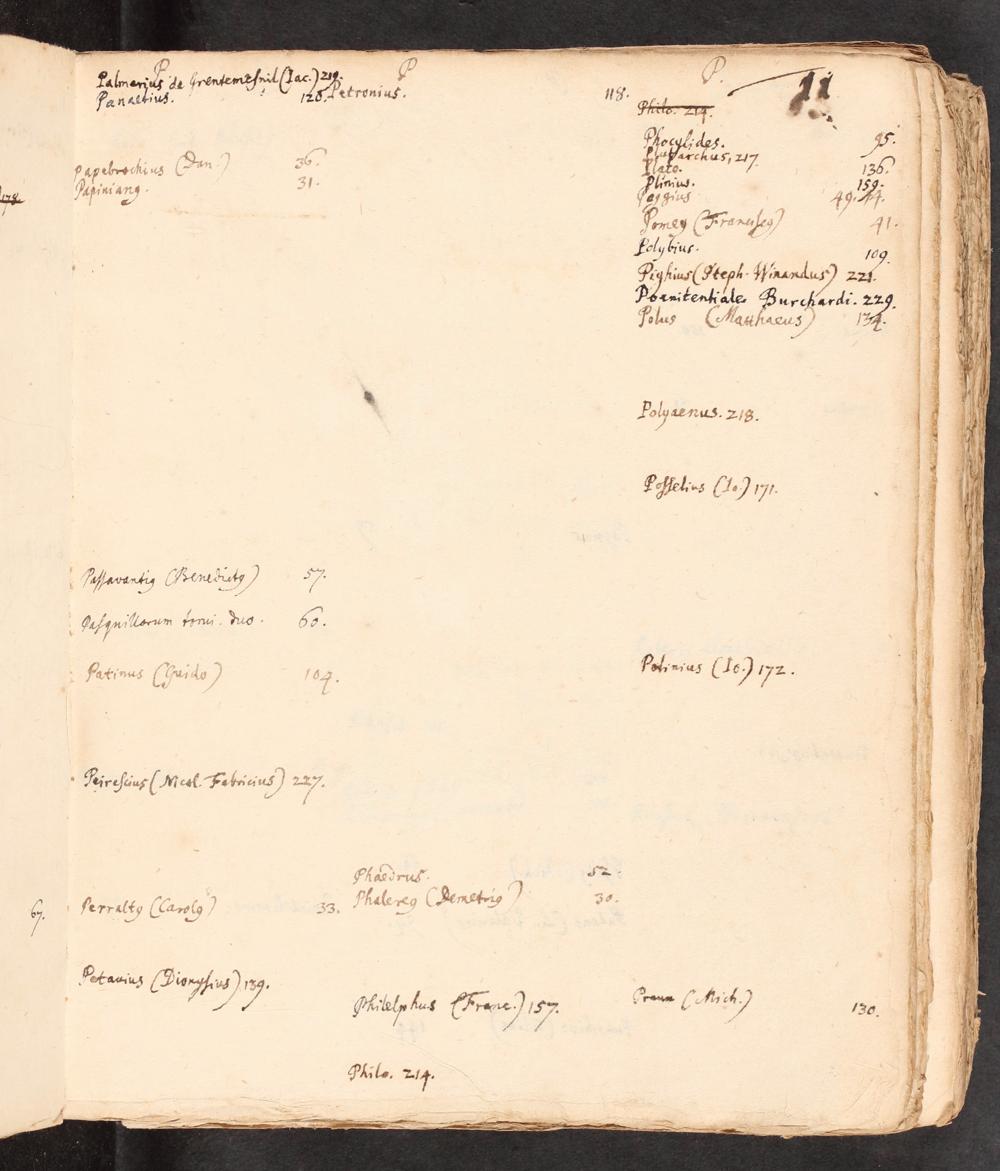 P
Palmerius de Grentemesnil (Iac.) 219.
Panaetius. 128.
Papebrochius (Dan.) 36.
Papiniang. 31.
Passavantig (Benedictg) 57.
Pasquillorum tomi. duo. 60.
Patinus (Guido) 104.
Peirescius (Nicol. Fabricius) 227.
Perraltg (Carolg) 33.
Petavius (Dionysius) 139.
P
Petronius. 118.
Phaedrus. 52
Phalereg (Demetrig) 30.
Philelphus (Franc.) 157.
Philo. 214.
P.
11
Philo. 214.
Phocylides. 95.
Plutarchus, 217.
Plato. 136.
Plinius. 159.
Poggius 49. 44.
Pomey (Franciscg) 41.
Polybius. 109.
Pighius (Steph. Winandus) 221.
Poenitentiales Burchardi. 229.
Polus (Matthaeus) 134.
Polyaenus. 218.
Posselius (Io.) 171.
Potinius (Io.) 172.
Praun (Mich.) 130.
178.
67.